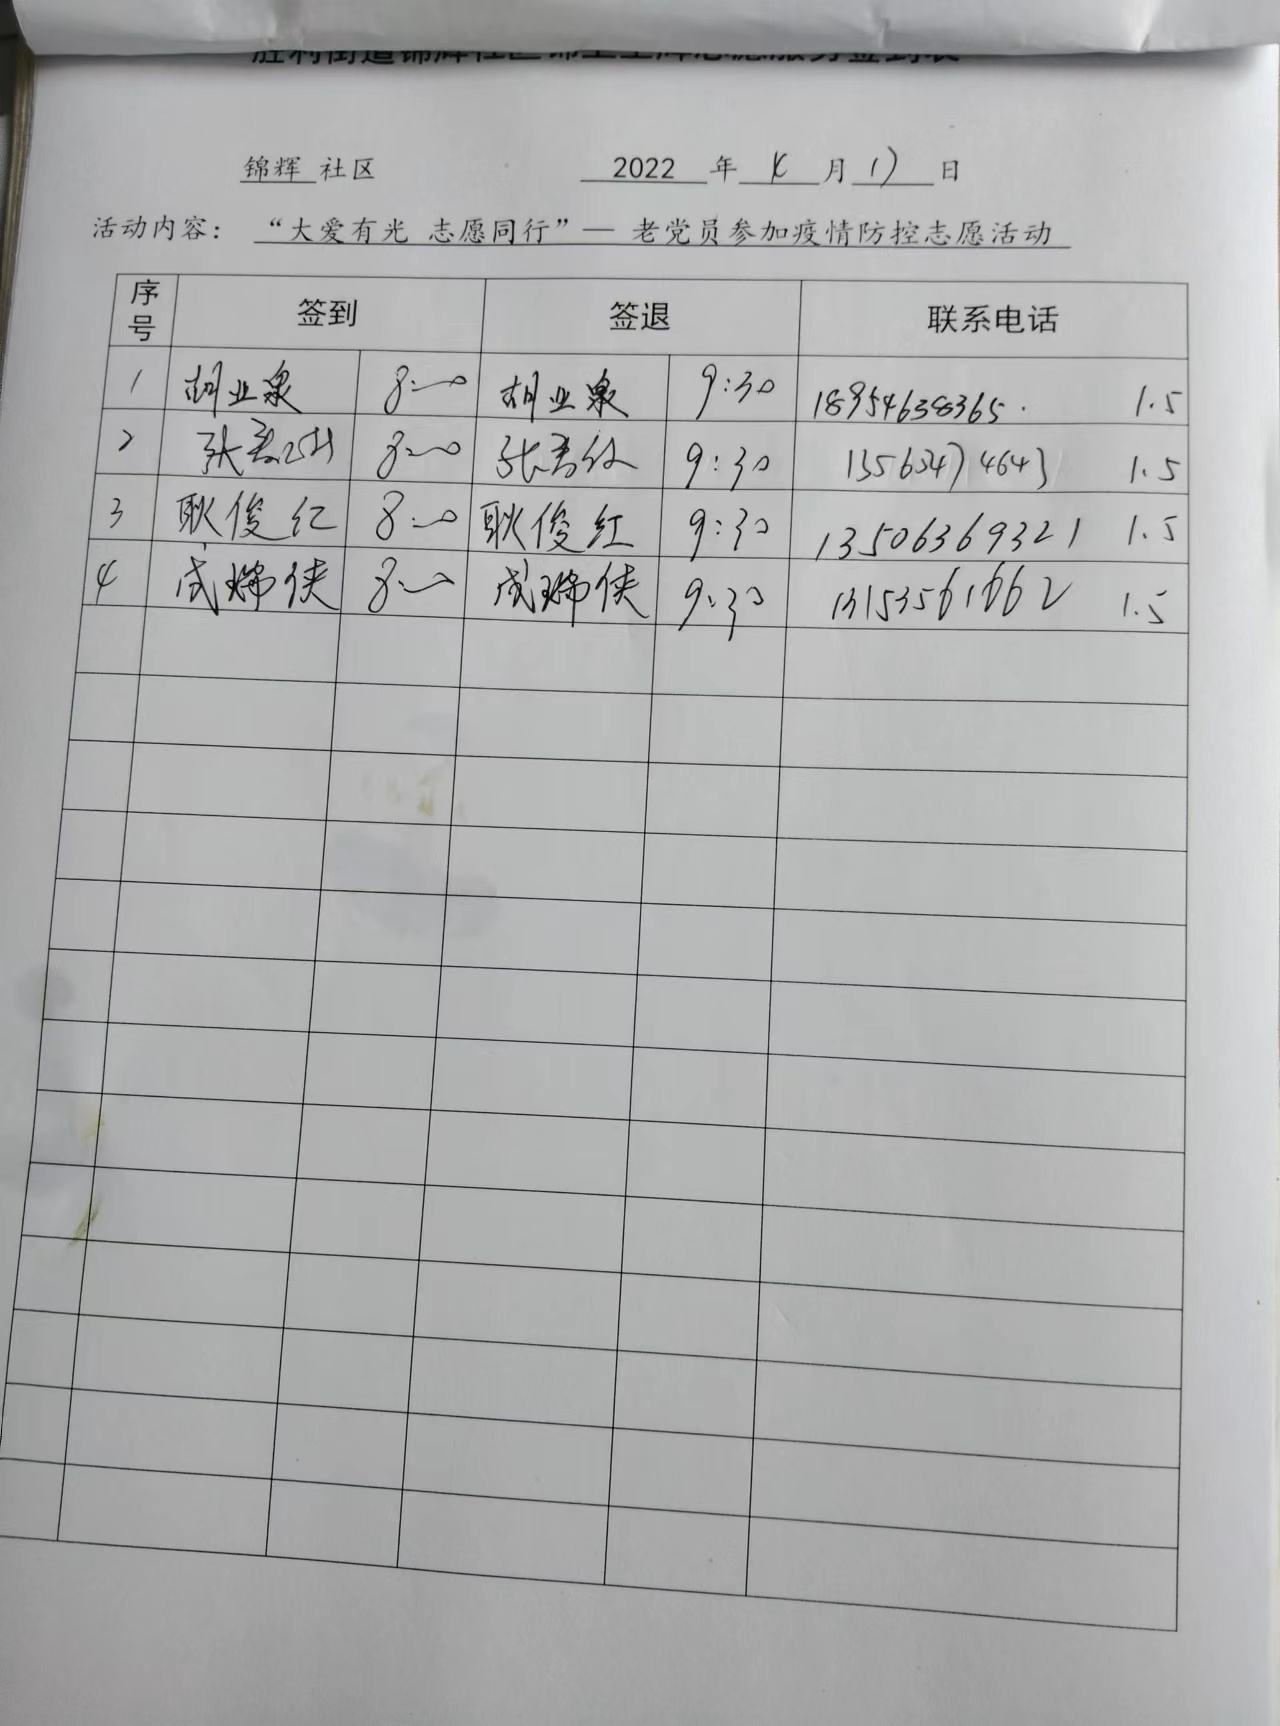 锦辉 社区 2022 年 4 月 17 日
活动内容： “大爱有光 志愿同行”— 老党员参加疫情防控志愿活动
序号 签到 签退 联系电话
1 胡业泉 8:00 胡业泉 9:30 18954638365. 1.5
2 8:00 9:30 13563474643 1.5
3 耿俊红 8:00 耿俊红 9:30 13506369321 1.5
4 成瑞侠 8:00 成瑞侠 9:30 13153561662 1.5